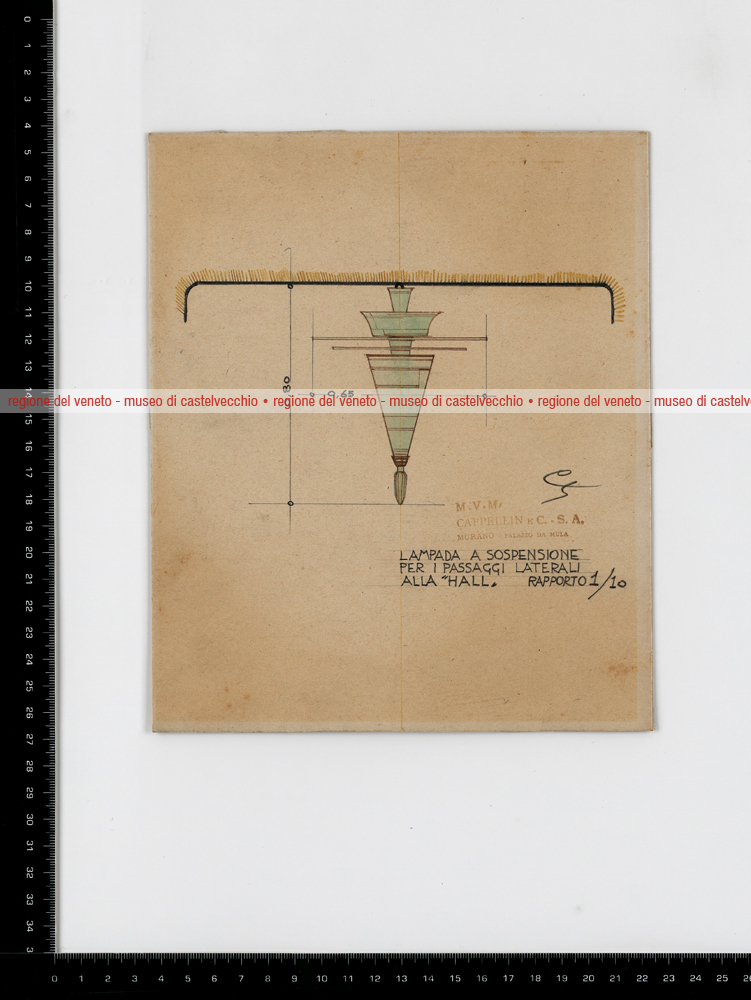 0
1
2
3
4
5
6
7
8
9
10
11
12
13
14
15
16
17
18
19
20
21
22
23
24
25
26
27
28
29
30
31
32
33
34
3
regione del veneto - museo di castelvecchio • regione del veneto - museo di castelvecchio • regione del veneto - museo di castelve
80
0.65
M.V.M.
CAPPELLIN E C. - S. A.
MURANO - PALAZZO DA MULA
LAMPADA A SOSPENSIONE
PER I PASSAGGI LATERALI
ALLA "HALL. RAPPORTO 1/10
0 1 2 3 4 5 6 7 8 9 10 11 12 13 14 15 16 17 18 19 20 21 22 23 24 25 26